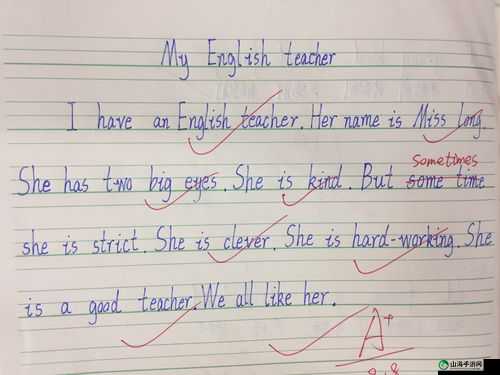 My English teacher
I have an English teacher. Her name is Miss long.
sometimes
She has two big eyes. She is kind. But some time
she is strict. She is clever. She is hard-working. She
is a good teacher. We all like her.
A+
山海手游网